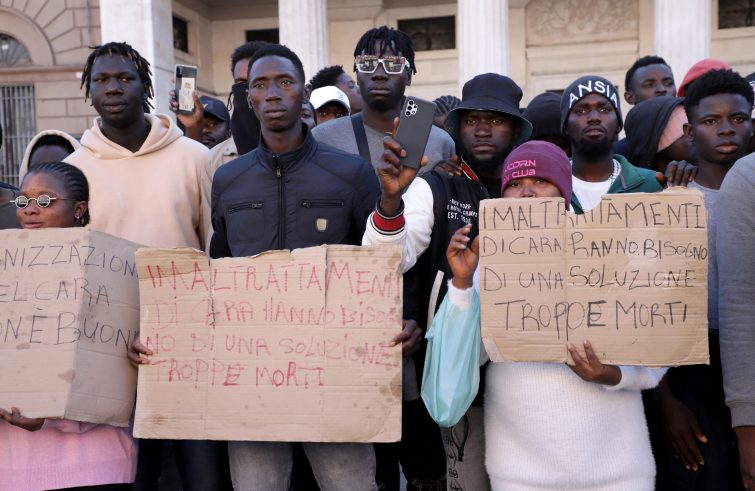 NIZZAZION
EL CARA
ON È BUON
I MALTRATTAMENTI
DI CARA HANNO BISOG
NO DI UNA SOLUZIONE
TROPPE MORTI
I MALTRATTAMENTI
DI CARA HANNO BISOGNO
DI UNA SOLUZIONE
TROPPE MORTI
ANSIA